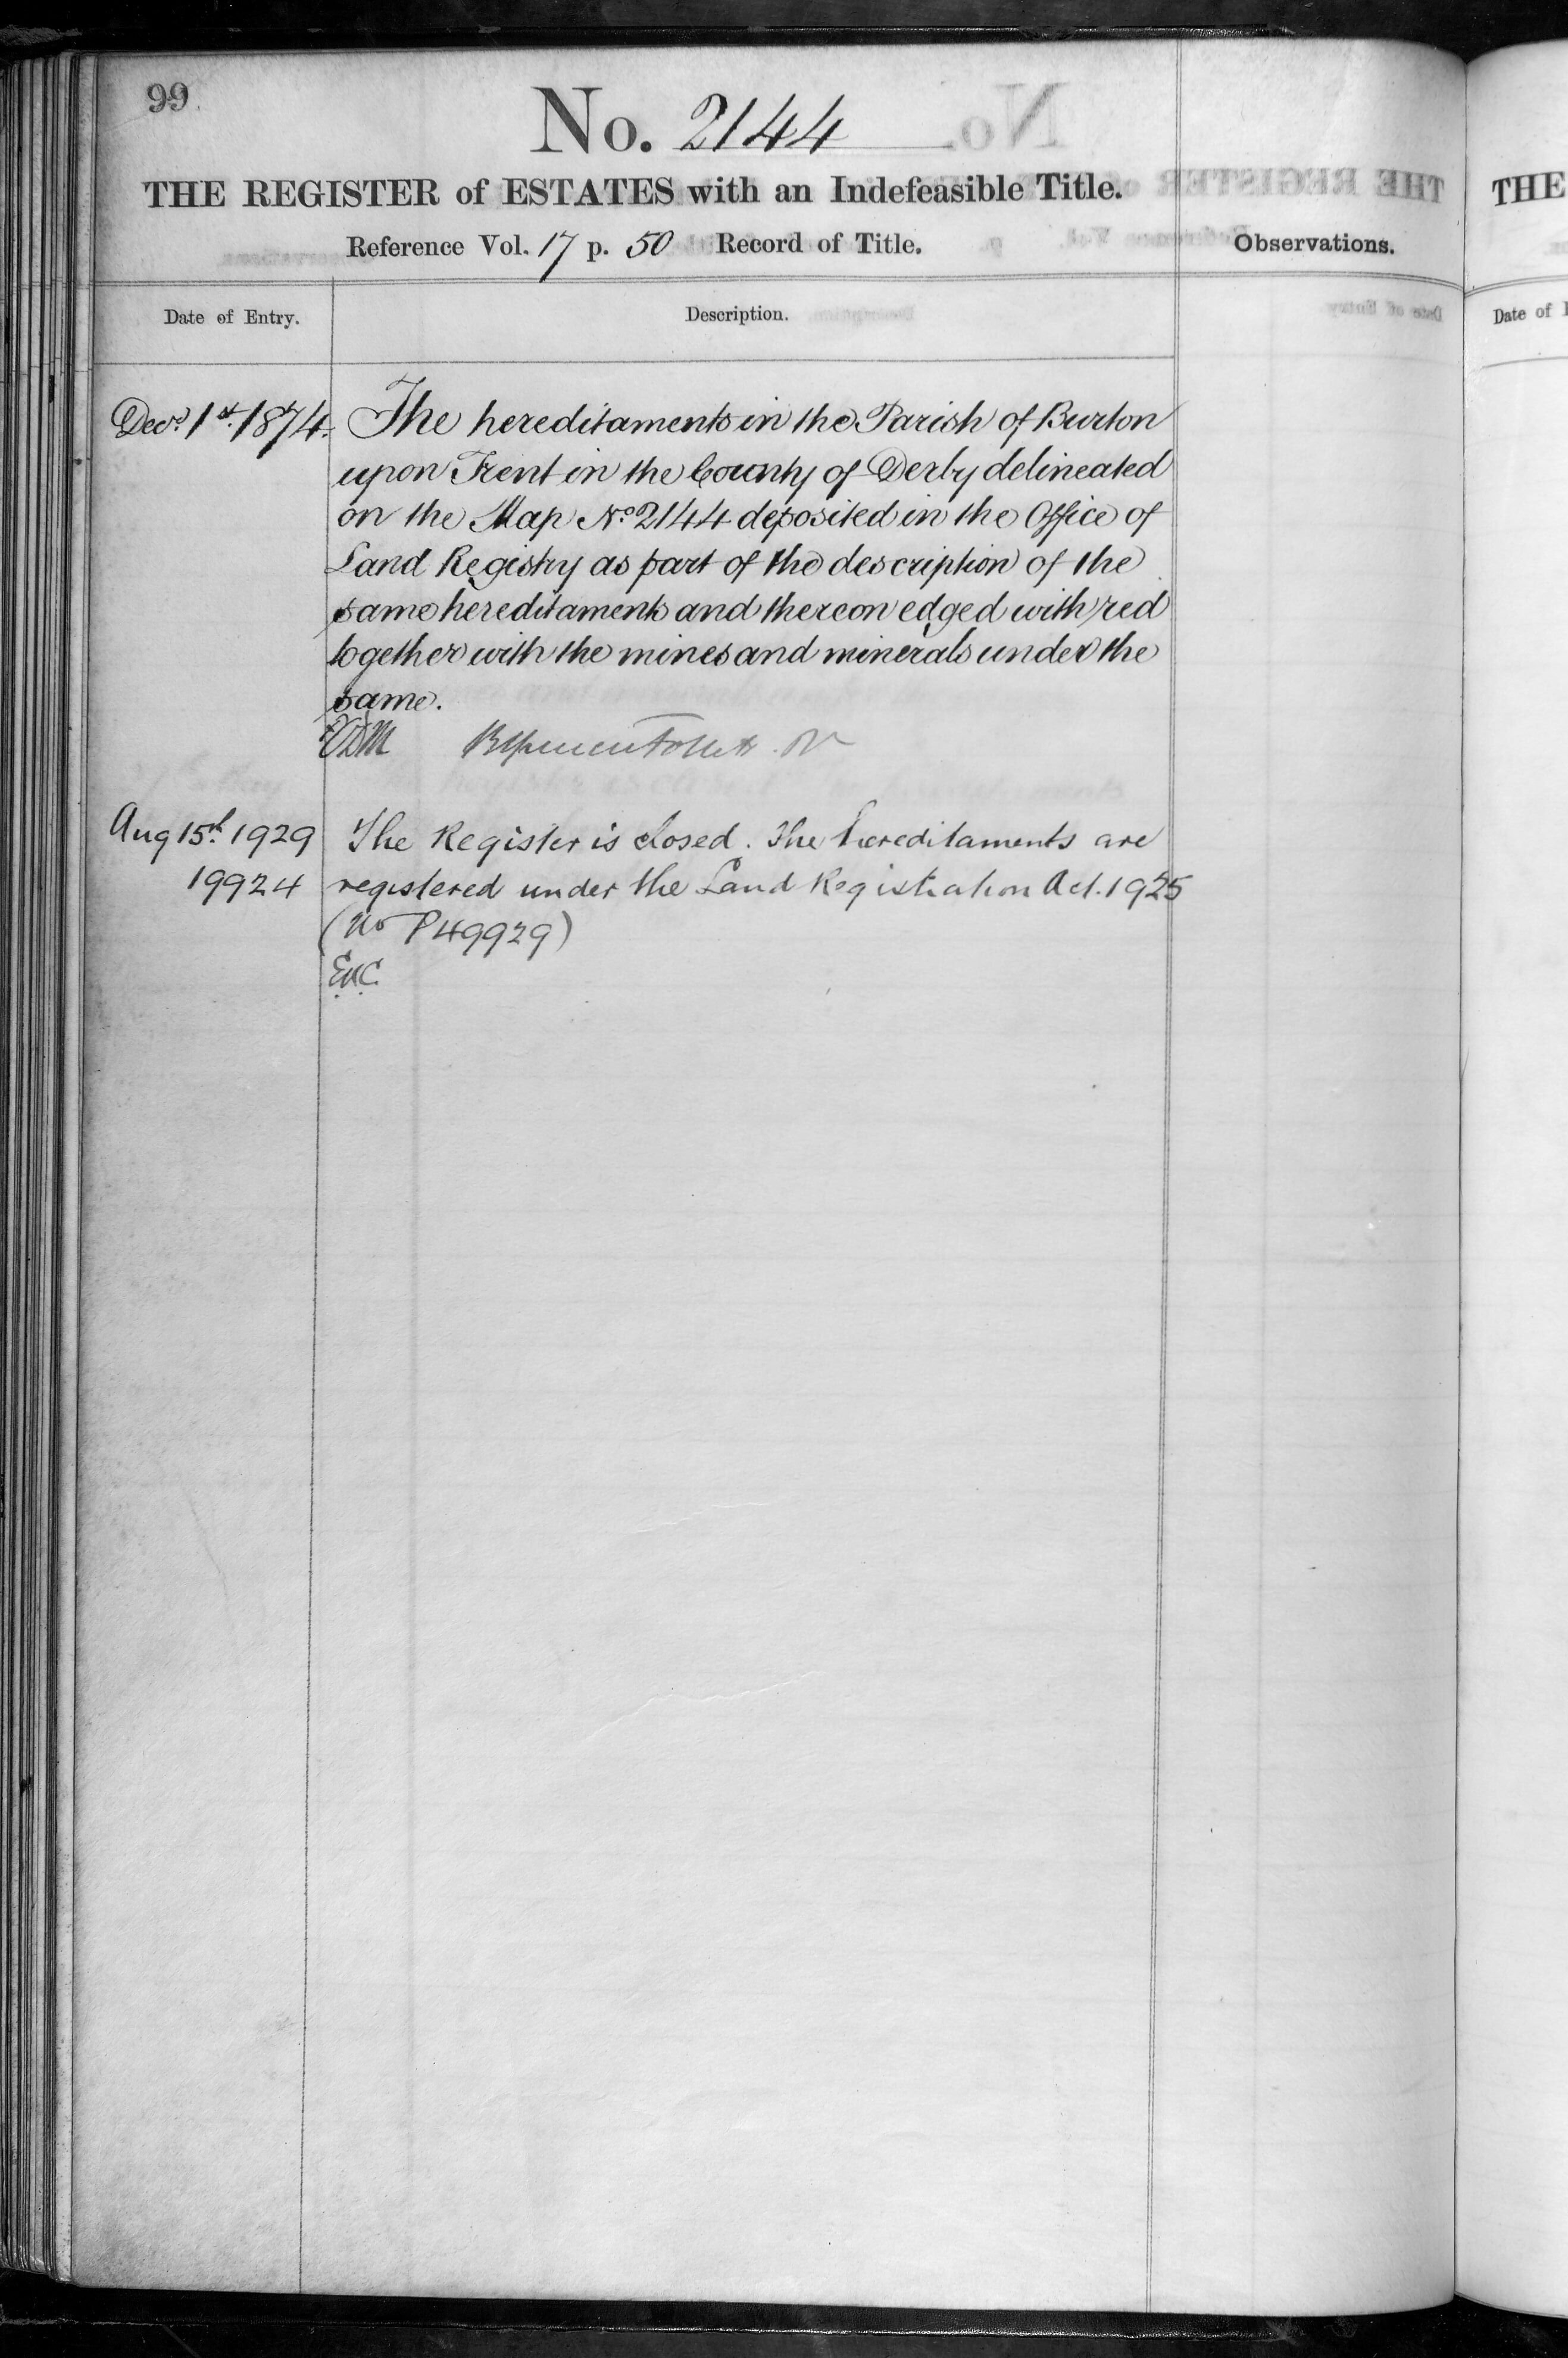 99.
No. 2144
THE REGISTER of ESTATES with an Indefeasible Title.
Reference Vol. 17 p. 50 Record of Title.
Observations.
Date of Entry.
Description.
Decr. 1st. 1874.
The hereditaments in the Parish of Burton
upon Trent in the County of Derby delineated
on the Map No. 2144 deposited in the Office of
Land Registry as part of the description of the
same hereditaments and thereon edged with red
together with the mines and minerals under the
same.
Aug 15th. 1929
19924
The Register is closed. The hereditaments are
registered under the Land Registration Act. 1925
(No P49929)
THE
Date of